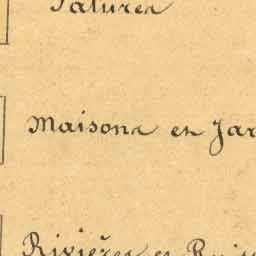 Patures
Maisons et Jar
Rivières et Ruis